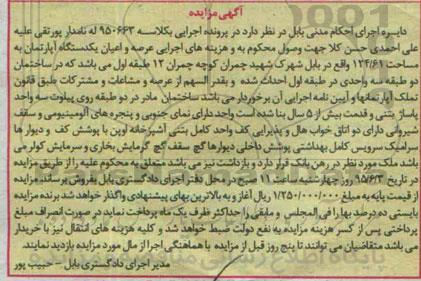 آگهی مزایده
دایره اجرای احکام مدنی بابل در نظر دارد در پرونده اجرایی بکلاسه ۹۵۰۶۶۳ له نامدار پورتقی علیه
علی احمدی حسن کلا جهت وصول محکوم به و هزینه های اجرایی عرصه و اعیان یکدستگاه آپارتمان به
مساحت ۱۲۴/۶۱ واقع در بابل شهرک شهید چمران کوچه چمران ۱۲ طبقه اول می باشد که در ساختمان
دو طبقه سه واحدی در طبقه اول احداث شده و بقدر السهم از عرصه و مشاعات و مشترکات طبق قانون
تملک آپارتمانها و آیین نامه اجرایی آن برخوردار می باشد ساختمان مادر در دو طبقه روی پیلوت سه واحد
پاساژ بتنی و قدمت بیش از ۵ سال بنا شده است واحد دارای نمای جنوبی و پنجره های آلومینیومی و سقف
شیروانی دارای دو اتاق خواب هال و پذیرایی کف واحد کامل بتنی آشپزخانه اوپن با پوشش کف و دیوار ها
سرامیک سرویس کامل بهداشتی پوشش داخلی دیوارها گچ سقف گچ گرمایش بخاری و سرمایش کولر می
باشد ملک مورد نظر در رهن بانک قرار دارد و بازداشت نیز می باشد متعلق به محکوم علیه را از طریق مزایده
در تاریخ ۹۵/۶/۳ روز چهارشنبه ساعت ۱۱ صبح در محل دفتر اجرای دادگستری بابل بفروش برساند مزایده
از قیمت پایه به مبلغ ۱/۲۵۰/۰۰۰/۰۰۰ ریال آغاز و به بالاترین بهای پیشنهادی واگذار خواهد شد برنده مزایده
بایستی ده درصد بها را فی المجلس و مابقی را حداکثر ظرف یک ماه پرداخت نماید در صورت انصراف مبلغ
پرداختی پس از کسر هزینه مزایده به نفع دولت ضبط خواهد شد و کلیه هزینه های انتقال نیز با خریدار
می باشد متقاضیان می توانند تا پنج روز قبل از مزایده با هماهنگی اجرا از مال مورد مزایده بازدید نمایند.
مدیر اجرای دادگستری بابل - حبیب پور